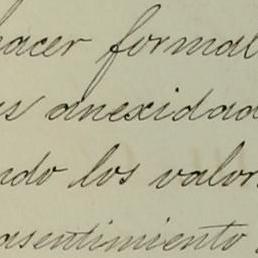 hacer formal
us anexidad
ndo los valor
asentimiento